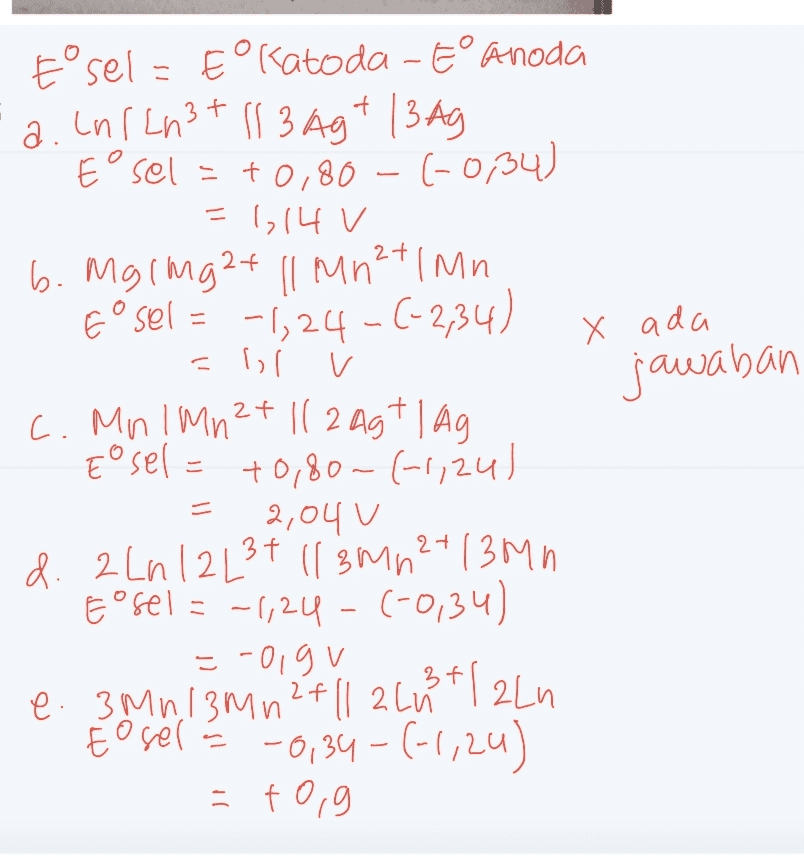 E° sel = E° Katoda - E° Anoda
a. Ln | Ln³⁺ || 3 Ag⁺ | 3 Ag
E° sel = +0,80 - (-0,34)
= 1,14 V
b. Mg | Mg²⁺ || Mn²⁺ | Mn
E° sel = -1,24 - (-2,34)
= 1,1 V
x ada
jawaban
c. Mn | Mn²⁺ || 2 Ag⁺ | Ag
E° sel = +0,80 - (-1,24)
= 2,04 V
d. 2 Ln | 2 L³⁺ || 3 Mn²⁺ | 3 Mn
E° sel = -1,24 - (-0,34)
= -0,9 V
e. 3 Mn | 3 Mn²⁺ || 2 Ln³⁺ | 2 Ln
E° sel = -0,34 - (-1,24)
= +0,9